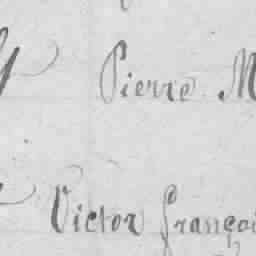 Pierre M
Victor françoi